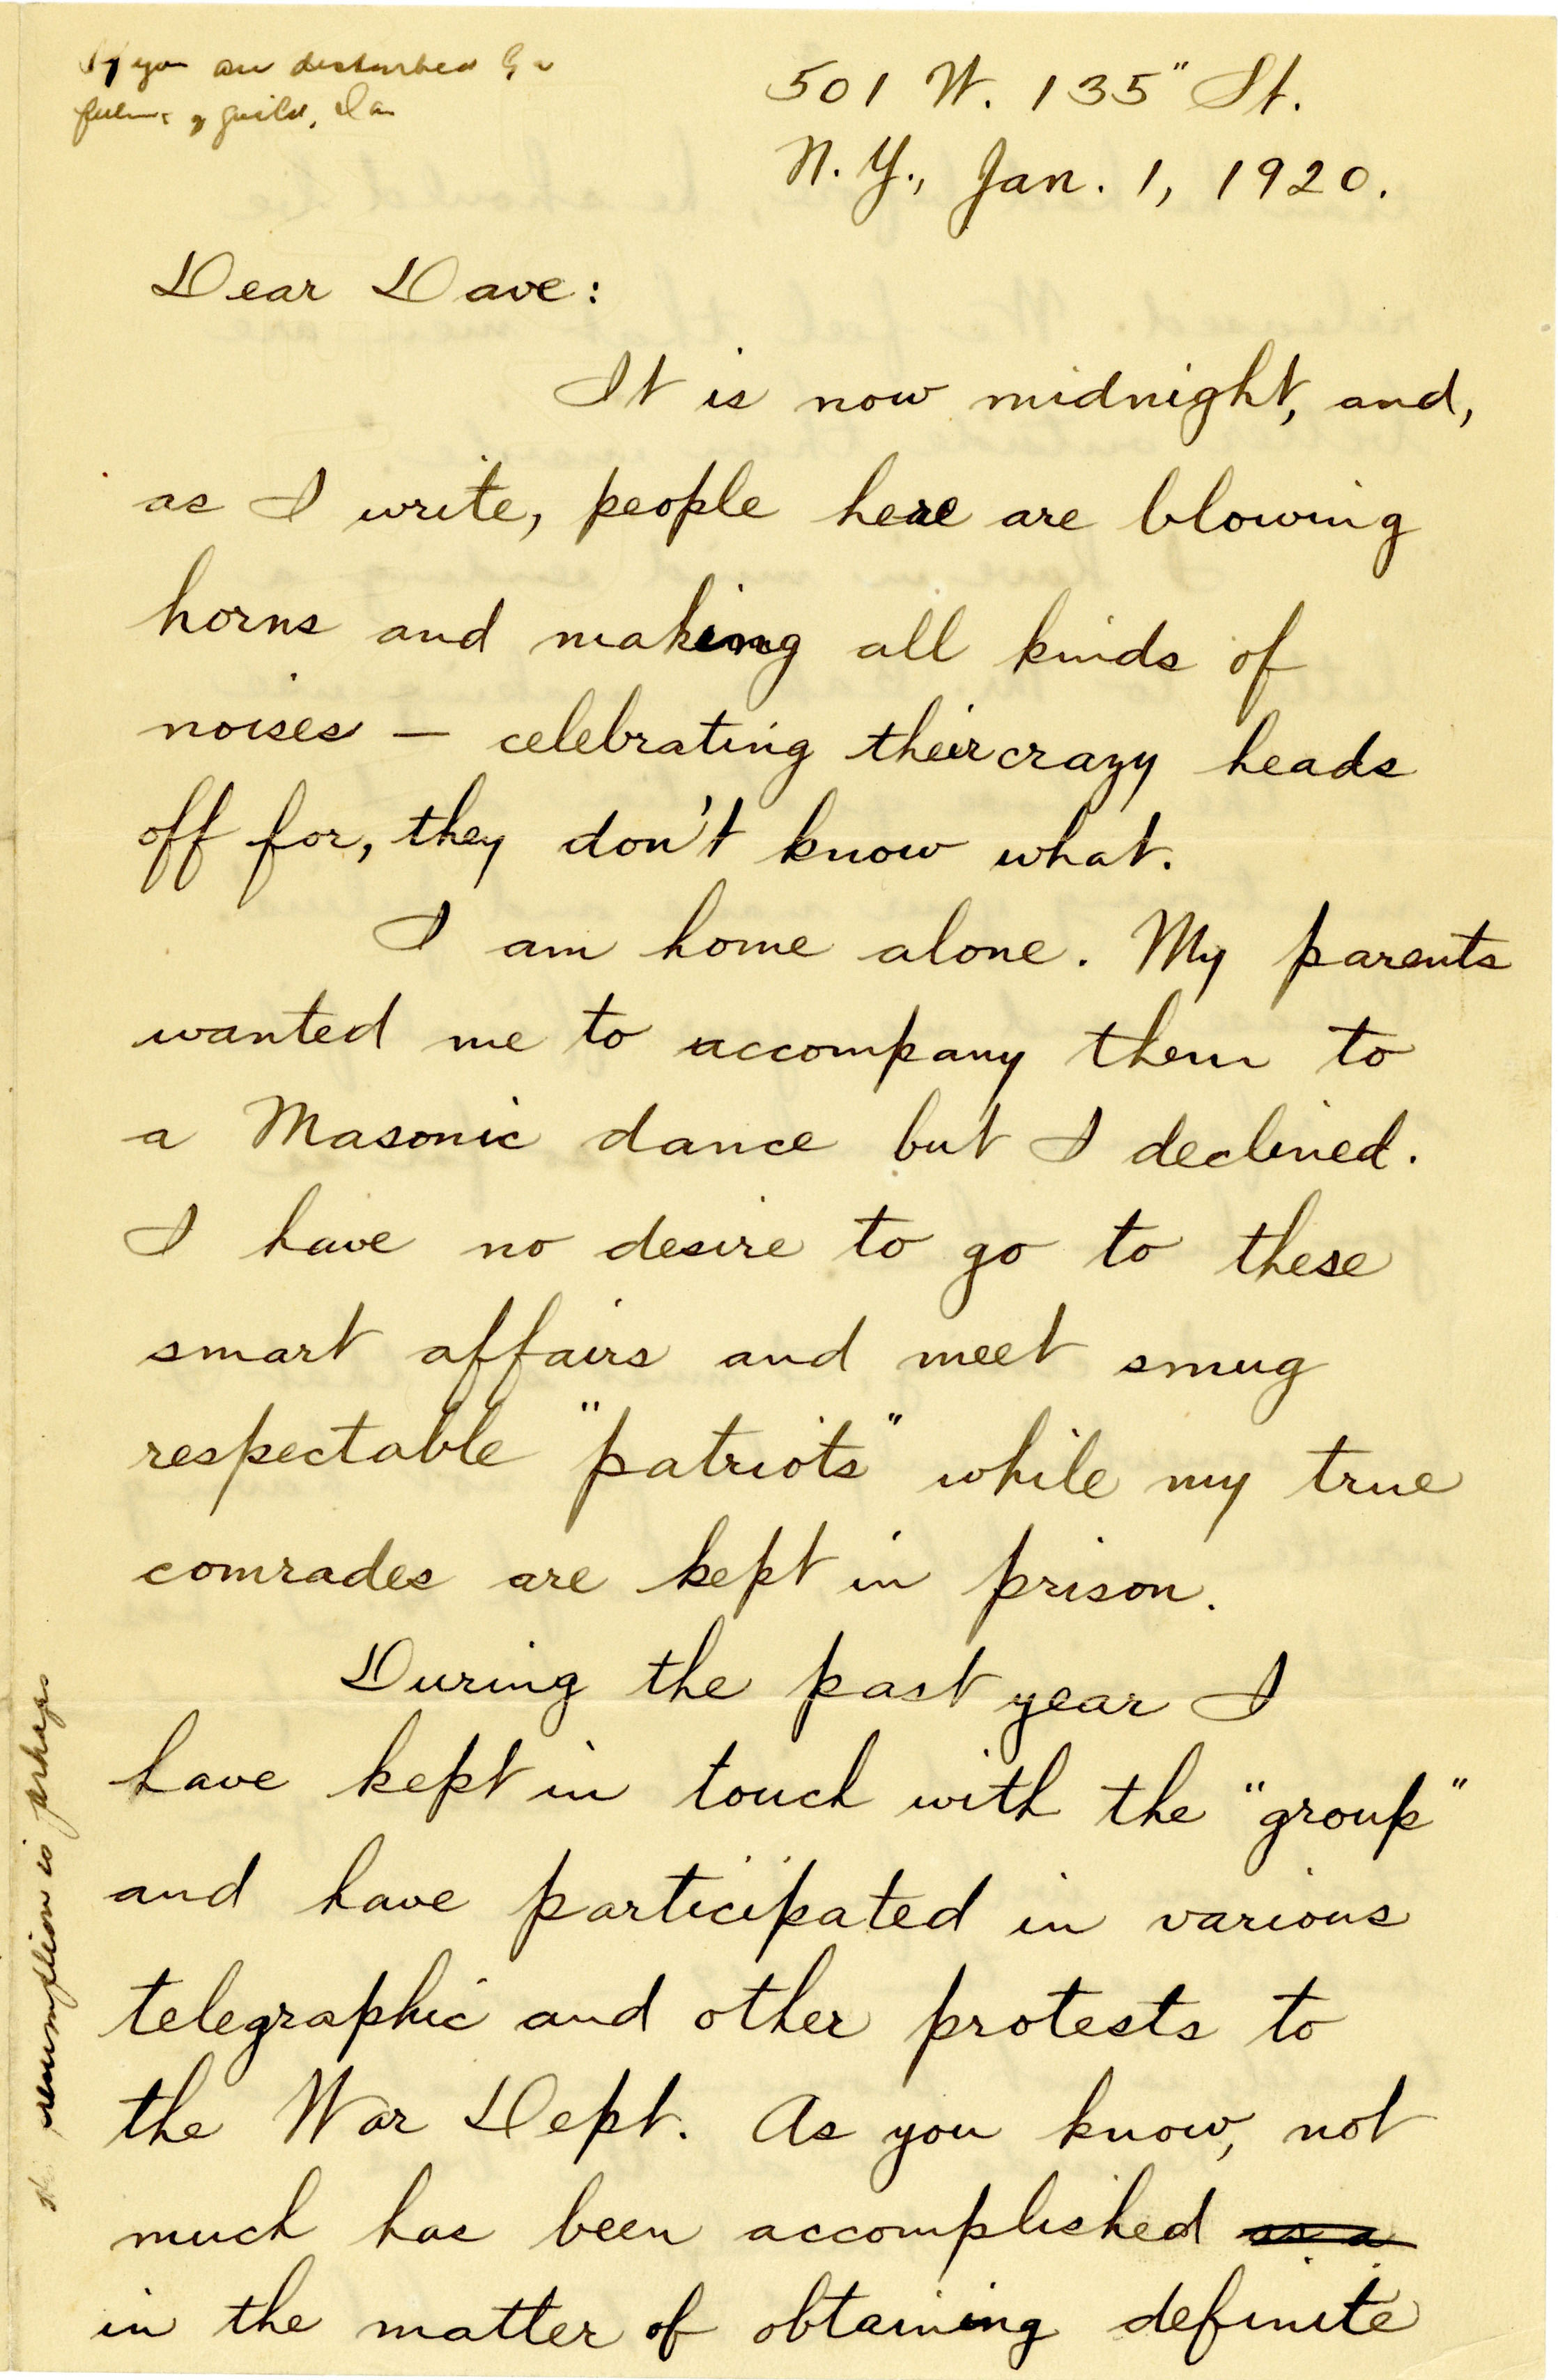 If you are disturbed by a
feeling of guilt, I am
501 W. 135" St.
N. Y., Jan. 1, 1920.
Dear Dave:
It is now midnight, and,
as I write, people here are blowing
horns and making all kinds of
noises — celebrating their crazy heads
off for, they don't know what.
I am home alone. My parents
wanted me to accompany them to
a Masonic dance but I declined.
I have no desire to go to these
smart affairs and meet smug
respectable "patriots" while my true
comrades are kept in prison.
During the past year I
have kept in touch with the "group"
and have participated in various
telegraphic and other protests to
the War Dept. As you know, not
much has been accomplished as a
in the matter of obtaining definite
presumption is perhaps